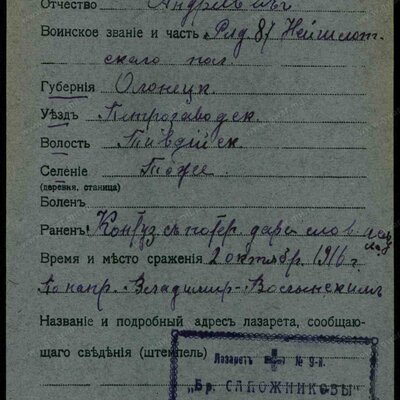 Отчество Андреевичъ
Воинское званіе и часть Ряд. 87 Нейшлот-
скаго пол.
Губернія Олонецк.
Уѣздъ Петрозаводск.
Волость Тивдійск.
Селеніе Тоже
(деревня, станица)
Боленъ
Раненъ Контуз. съ потер. дара слов.
Время и мѣсто сраженія 2 октябр. 1916 г.
По напр. Владимир-Волынскимъ
Названіе и подробный адресъ лазарета, сообщаю-
щаго свѣдѣнія (штемпель)
Лазаретъ № 9-й.
„Бр. САПОЖНИКОВЫ"